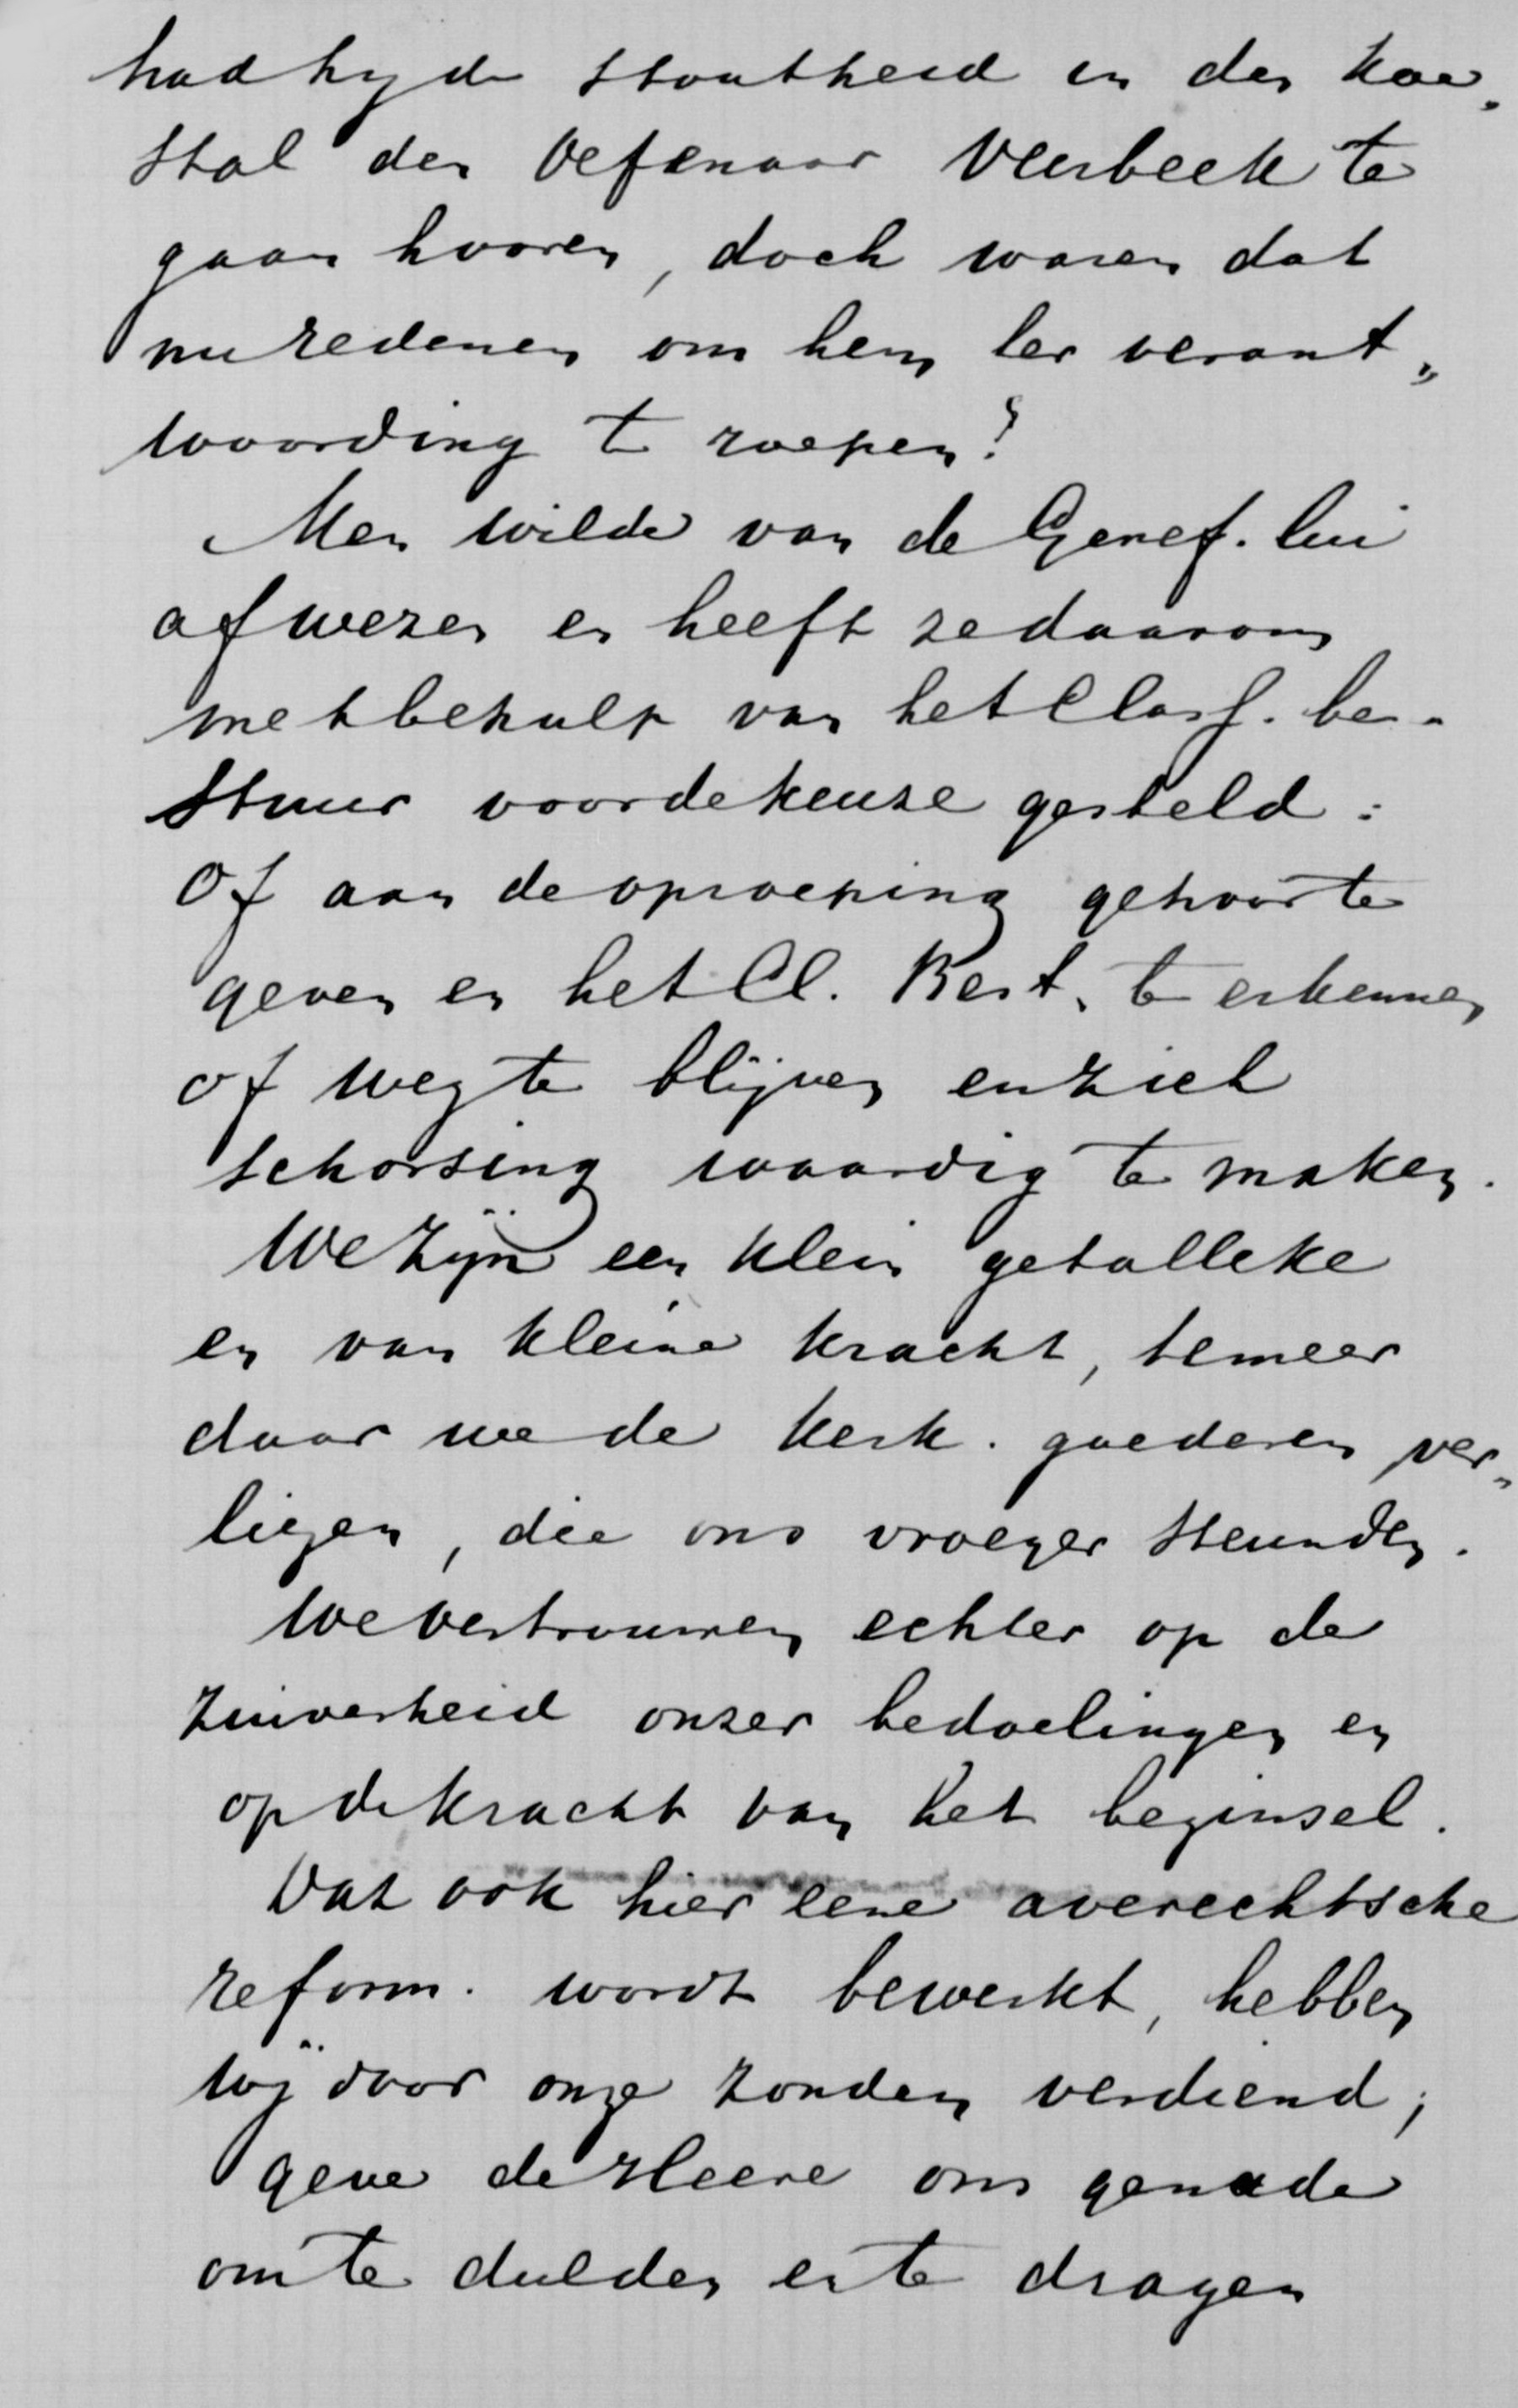 had hy de stoutheid in den koe„
stal den Oefenaar Verbeek te
gaan hooren, doch waren dat
nu redenen om hem ter verant„
woording te roepen?
Men wilde van de Geref. lui
af wezen en heeft ze daarom
met behulp van het Class. be„
stuur voor de keuze gesteld:
Of aan de oproeping gehoor te
geven en het Cl. Best. te erkennen
of weg te blijven en zich
schorsing waardig te maken.
We zijn een klein getalleke
en van kleine kracht, temeer
daar we de kerk. goederen ver„
liezen, die ons vroeger steunden.
We vertrouwen echter op de
zuiverheid onzer bedoelingen en
op de kracht van het beginsel.
Dat ook hier eene averechtsche
reform. wordt bewerkt, hebben
wij door onze zonden verdiend;
geve de Heere ons genade
om te dulden en te dragen